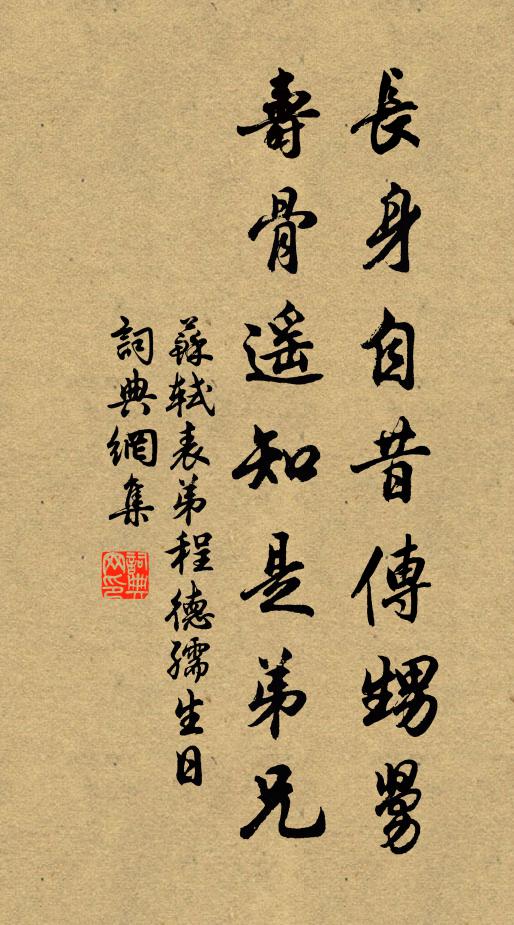 長身自昔傳甥舅
壽骨遥知是弟兄
蘇軾表弟程德孺生日
詞典網集
詞典網印